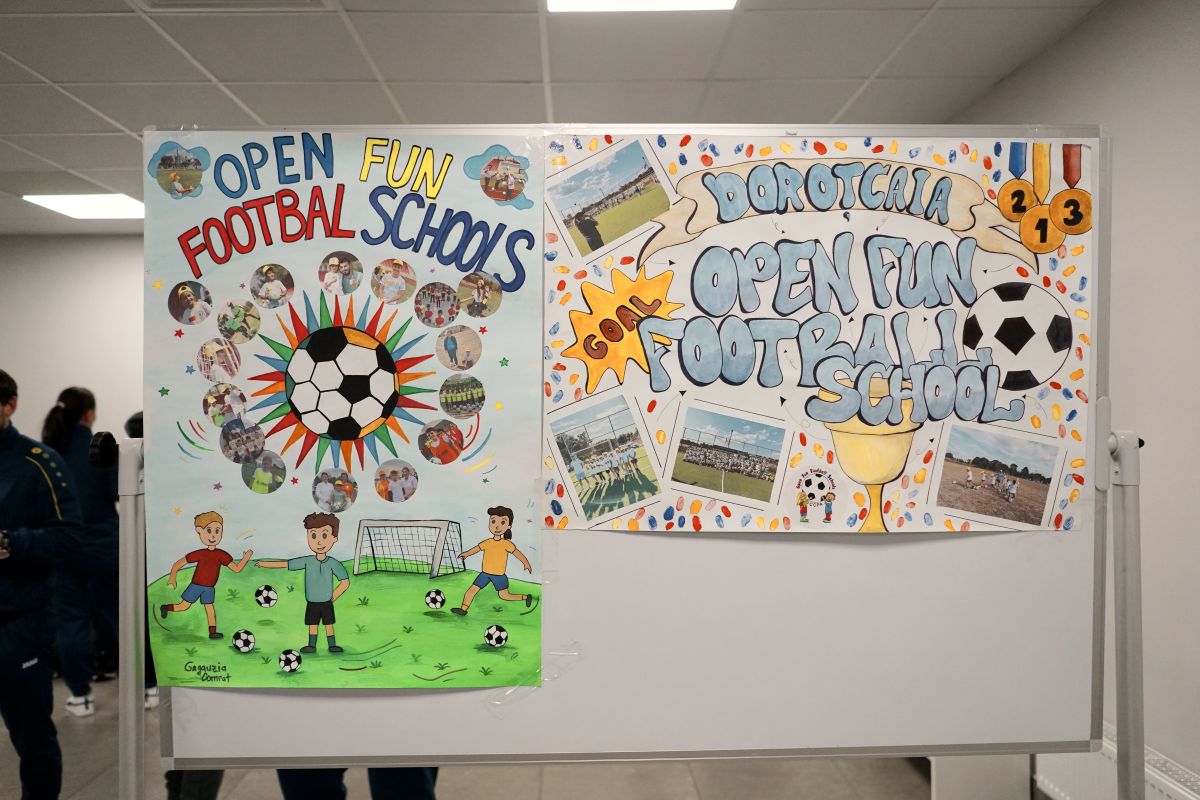 OPEN FUN
FOOTBAL SCHOOLS
Gagauzia
Comrat
DOROTCAIA
OPEN FUN
FOOTBALL
SCHOOL
GOAL
2
1
3
Open Fun Football Schools
CCPA